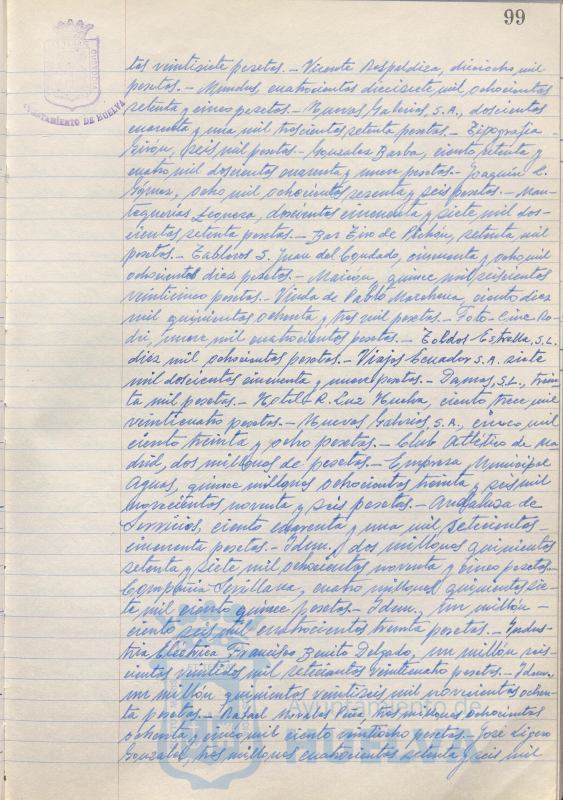 99
AYUNTAMIENTO DE HUELVA
tos veintisiete pesetas.- Vicente Respaldiza, dieciocho mil
pesetas.- Mundus, cuatrocientas diecisiete mil ochocientas
setenta y cinco pesetas.- Nuevas Galerías, S.A., doscientas
cuarenta y una mil trescientas setenta pesetas.- Tipografía
Girón, seis mil pesetas.- Gonzalez Barba, ciento setenta y
cuatro mil doscientas cuarenta y nueve pesetas.- Joaquín L.
Gómez, ocho mil ochocientas sesenta y seis pesetas.- Man-
tequerías Leonesa, doscientas cincuenta y siete mil dos-
cientas setenta pesetas.- Bar Tiro de Pichón, setenta mil
pesetas.- Tableros S. Juan del Condado, cincuenta y ocho mil
ochocientas diez pesetas.- quince mil seiscientas
veinticinco pesetas.- Viuda de Pablo Marchena, ciento diez
mil quinientas ochenta y tres mil pesetas.- Foto-Cine Ro-
dri, nueve mil cuatrocientas pesetas.- Toldos Estrella, S.L.,
diez mil ochocientas pesetas.- Viajes Ecuador S.A. siete
mil doscientas cincuenta y nueve pesetas.- Damas, S.L., trein
ta mil pesetas.- Hotel-R. Luz Huelva, ciento trece mil
veinticuatro pesetas.- Nuevas Galerías, S.A., cinco mil
ciento treinta y ocho pesetas.- Club Atlético de Ma
drid, dos millones de pesetas.- Empresa Municipal
Aguas, quince millones ochocientas treinta y seis mil
novecientas noventa y seis pesetas.- Andaluza de
Servicios, ciento cuarenta y una mil setecientas-
cincuenta pesetas.- Idem., dos millones quinientas
setenta y siete mil ochocientas noventa y cinco pesetas.-
Compañía Sevillana, cuatro millones quinientas sie-
te mil ciento quince pesetas.- Idem., un millón-
ciento seis mil cuatrocientas treinta pesetas.- Indus-
tria Eléctrica Francisco Benito Delgado, un millón seis-
cientas veintidos mil setecientas veinticuatro pesetas.- Idem.,
un millón quinientas veintiseis mil novecientas ochen-
ta pesetas.- Rafael Morales tres millones ochocientas
ochenta y cinco mil ciento veintiocho pesetas.- José Ligero
Gonzalez, tres millones cuatrocientas setenta y seis mil
Ayuntamiento de
HUELVA